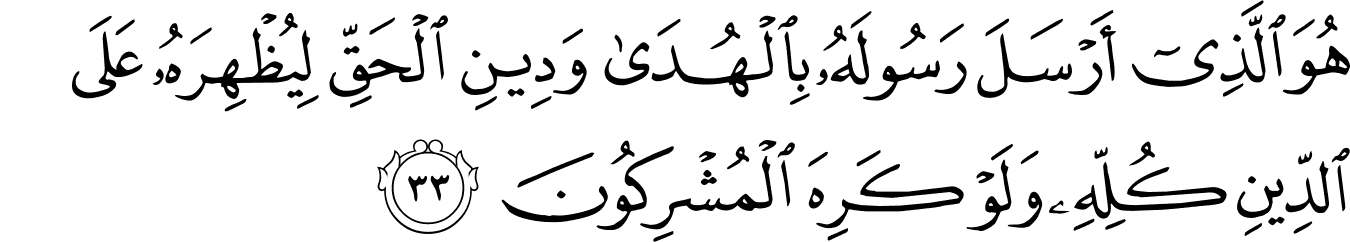 هُوَ ٱلَّذِىٓ أَرْسَلَ رَسُولَهُۥ بِٱلْهُدَىٰ وَدِينِ ٱلْحَقِّ لِيُظْهِرَهُۥ عَلَى
ٱلدِّينِ كُلِّهِۦ وَلَوْ كَرِهَ ٱلْمُشْرِكُونَ ٣٣